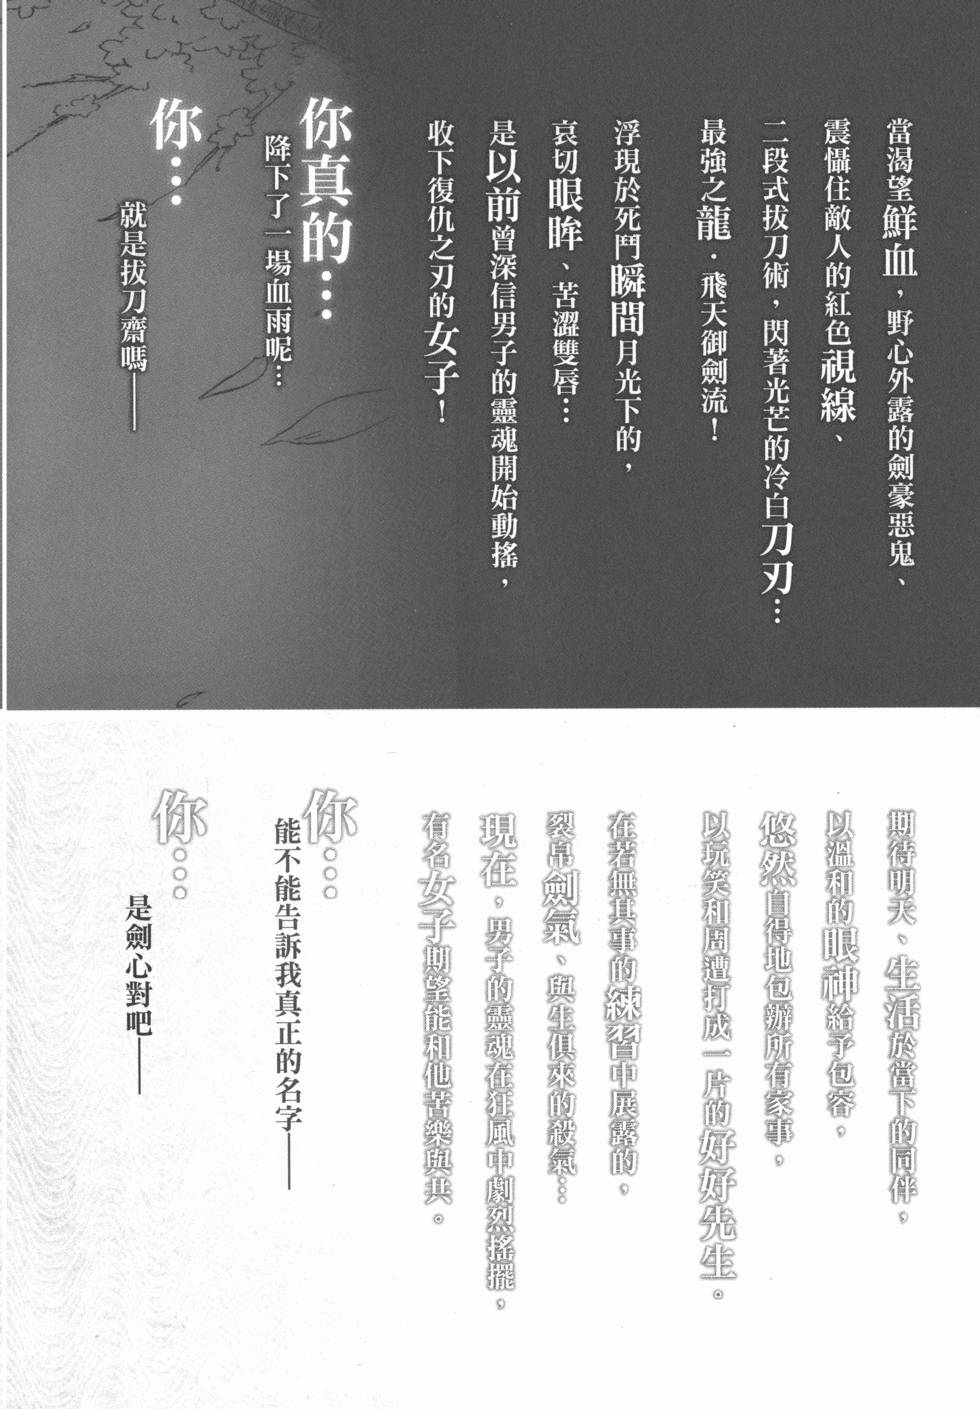 當渴望鮮血，野心外露的劍豪惡鬼、
震懾住敵人的紅色視線、
二段式拔刀術，閃著光芒的冷白刀刃…
最強之龍．飛天御劍流！
浮現於死鬥瞬間月光下的，
哀切眼眸、苦澀雙唇…
是以前曾深信男子的靈魂開始動搖，
收下復仇之刃的女子！
你真的…
降下了一場血雨呢…
你…
就是拔刀齋嗎——
期待明天、生活於當下的同伴，
以溫和的眼神給予包容，
悠然自得地包辦所有家事，
以玩笑和周遭打成一片的好好先生。
在若無其事的練習中展露的，
裂帛劍氣、與生俱來的殺氣…
現在，男子的靈魂在狂風中劇烈搖擺，
有名女子期望能和他苦樂與共。
你…
能不能告訴我真正的名字——
你…
是劍心對吧——